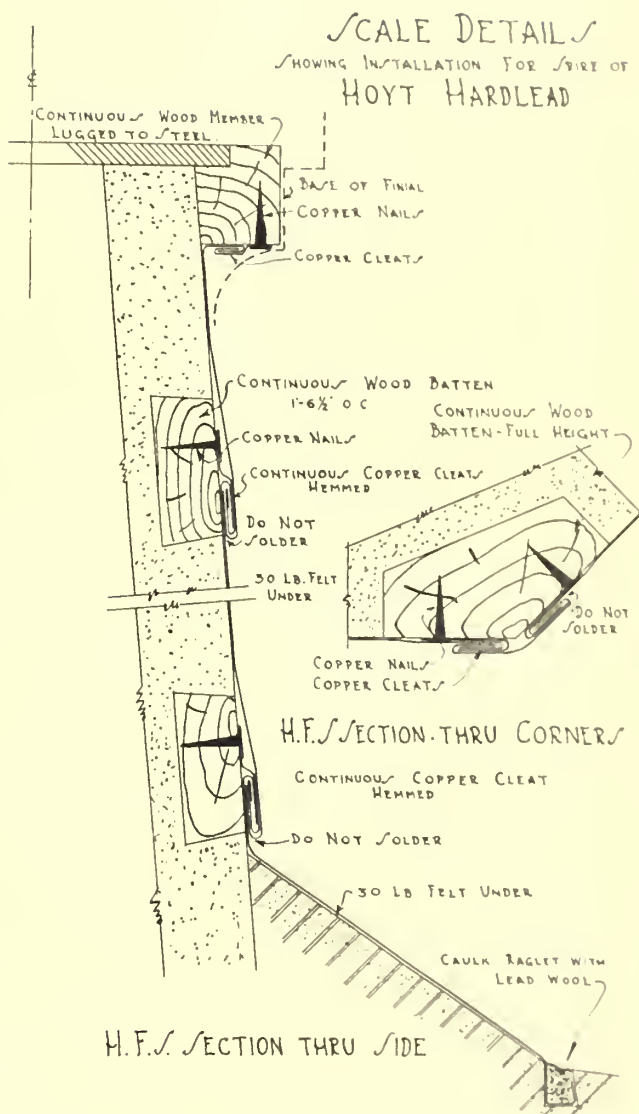 SCALE DETAILS
SHOWING INSTALLATION FOR SPIRE OF
HOYT HARDLEAD
℄
CONTINUOUS WOOD MEMBER
LUGGED TO STEEL.
BASE OF FINIAL
COPPER NAILS
COPPER CLEATS
CONTINUOUS WOOD BATTEN
1'-6½" O C
COPPER NAILS
CONTINUOUS COPPER CLEATS
HEMMED
DO NOT
SOLDER
30 LB. FELT
UNDER
CONTINUOUS WOOD
BATTEN-FULL HEIGHT
DO NOT
SOLDER
COPPER NAILS
COPPER CLEATS
H.F.S SECTION-THRU CORNERS
CONTINUOUS COPPER CLEAT
HEMMED
DO NOT SOLDER
30 LB FELT UNDER
CAULK RAGLET WITH
LEAD WOOL
H.F.S. SECTION THRU SIDE